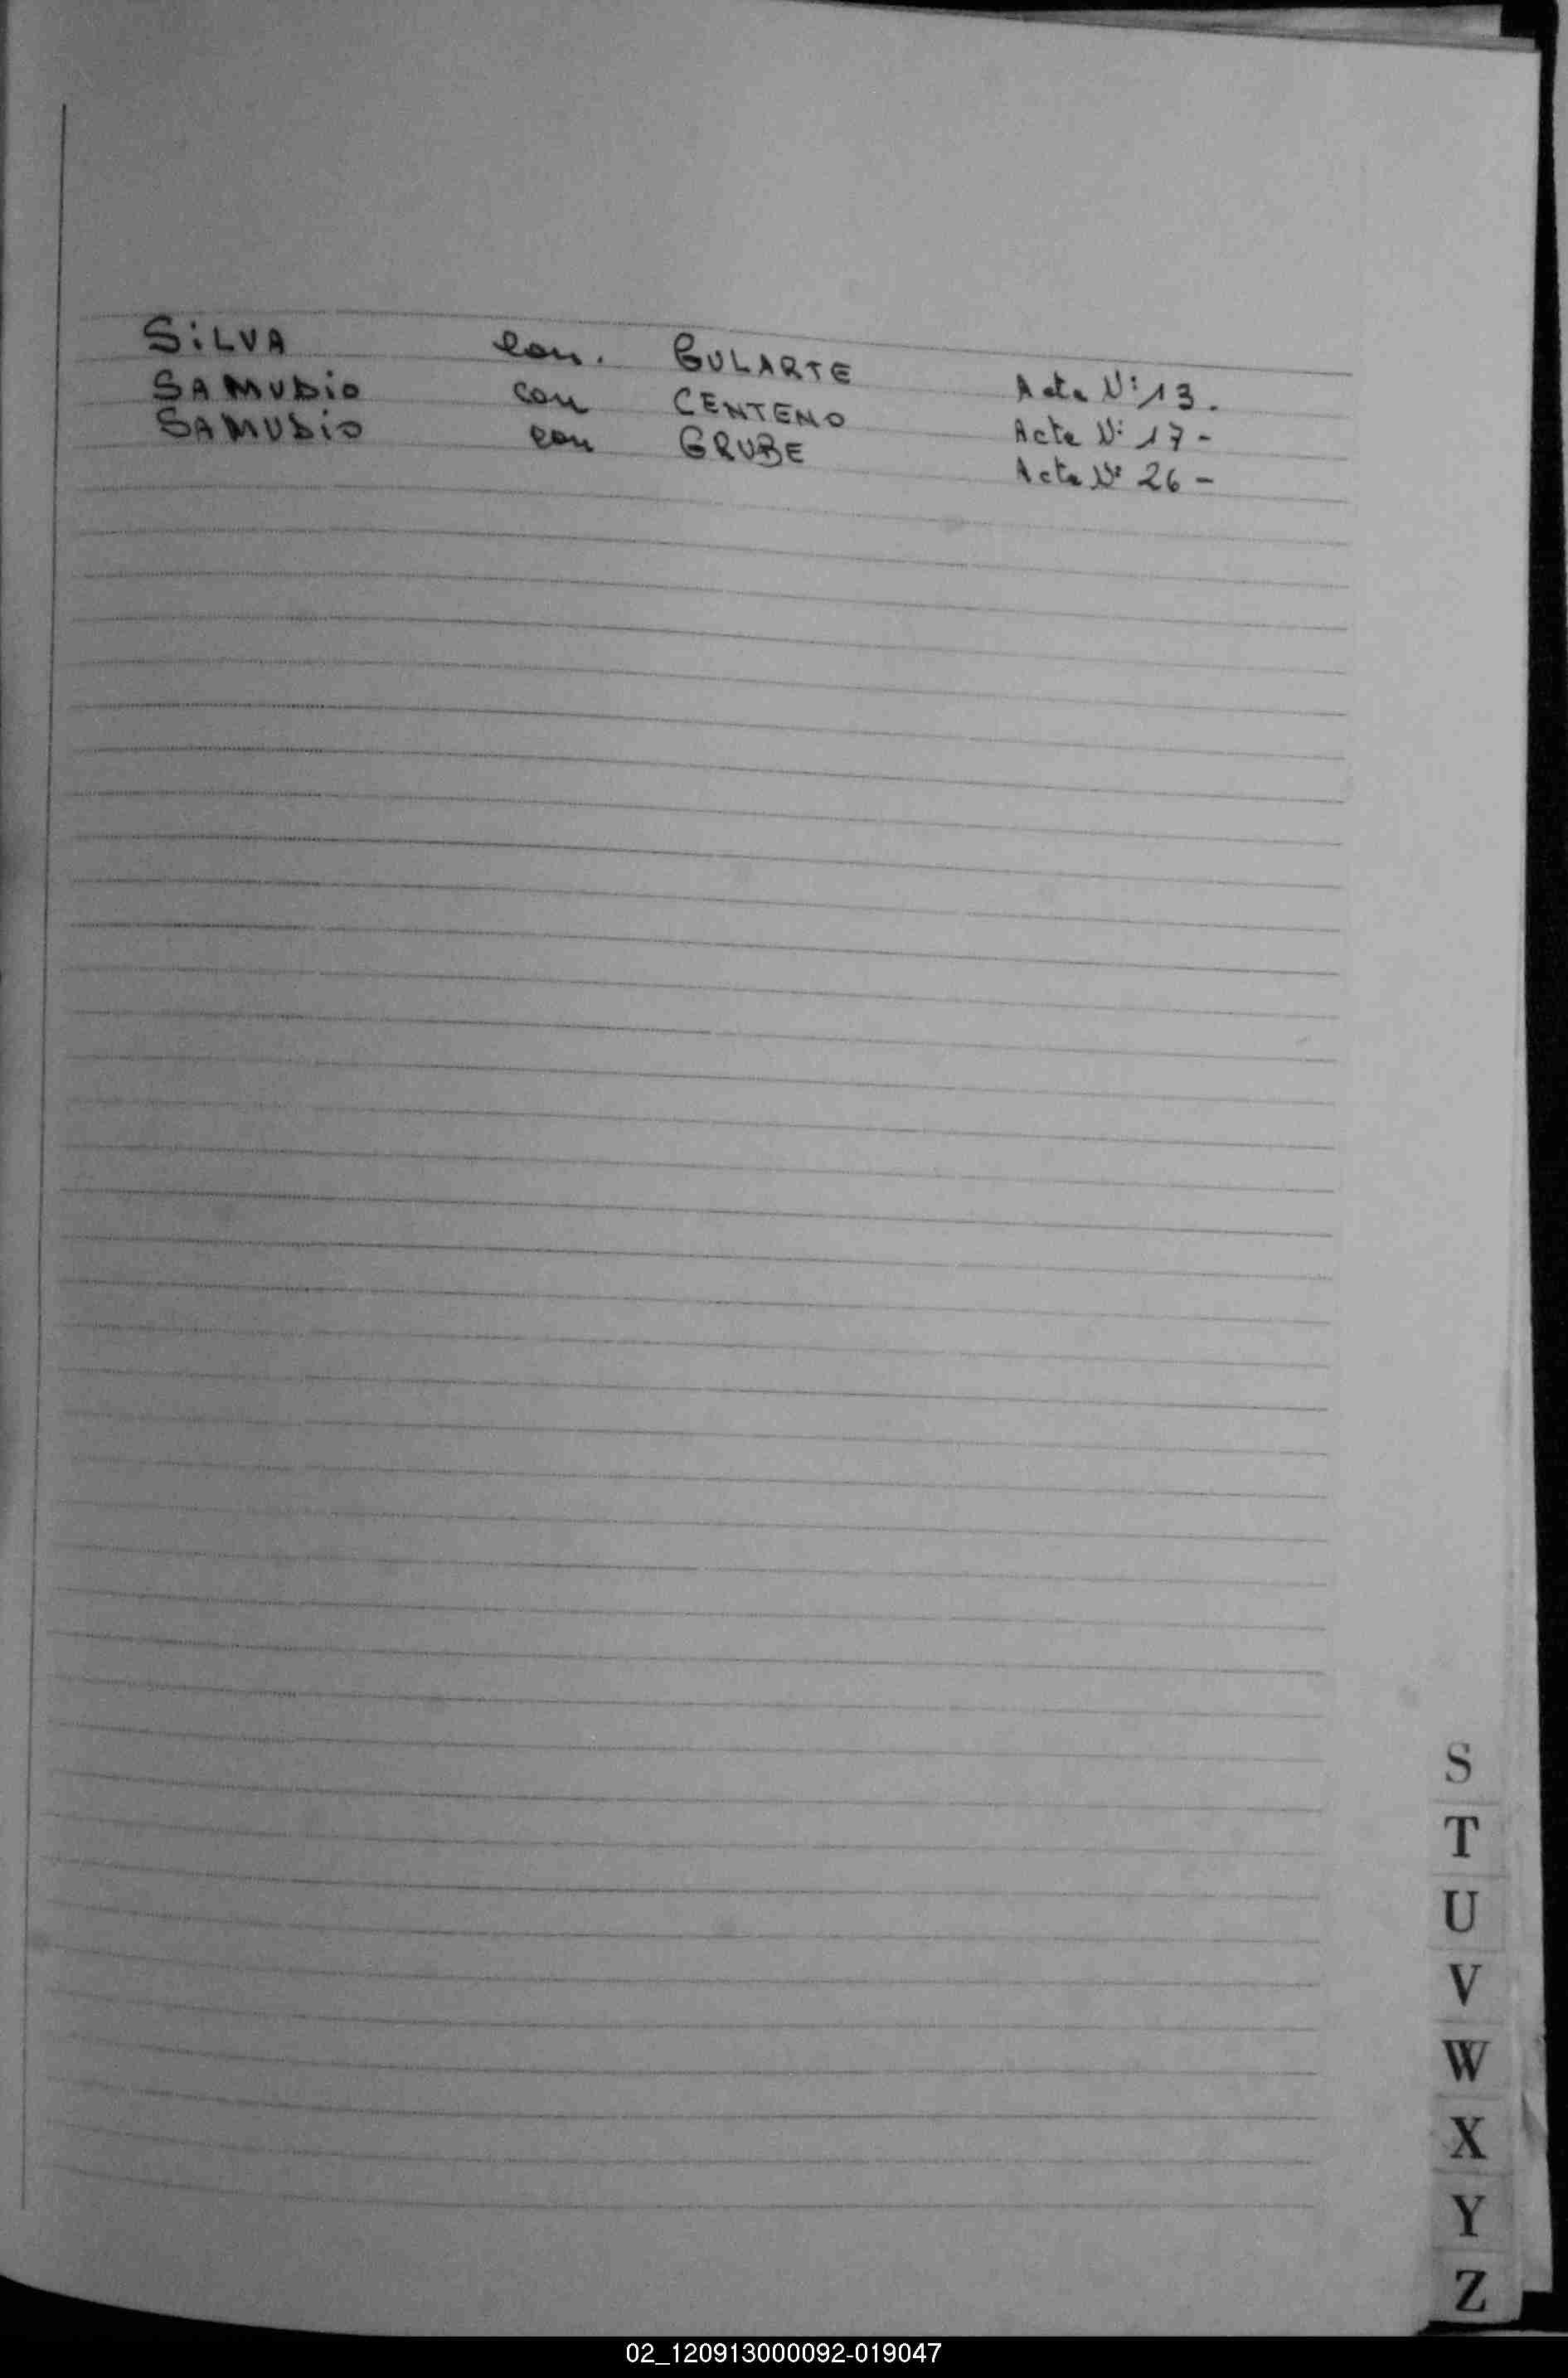 SiLVA con. GULARTE Acta Nº 13.
SAMUDiO con CENTENO Acta Nº 17-
SAMUDiO con GRUBE Acta Nº 26-
S
T
U
V
W
X
Y
Z
02_120913000092-019047